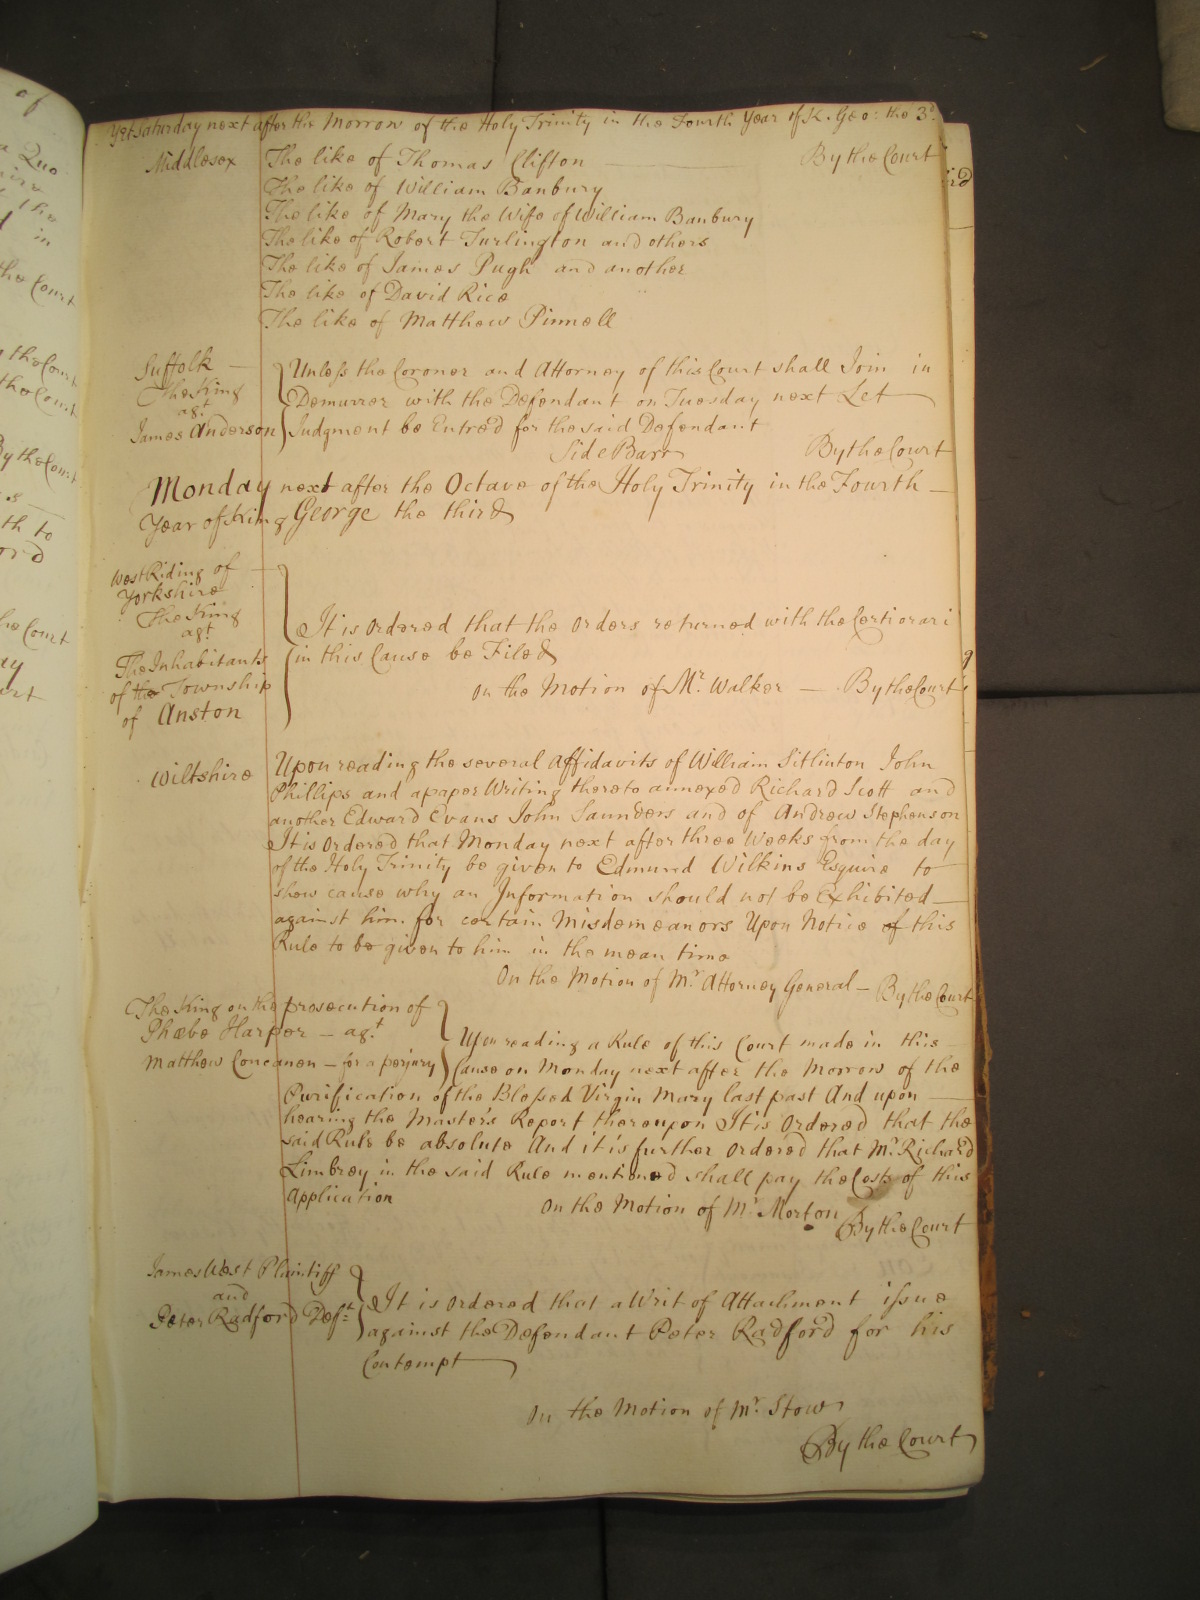 Yet Saturday next after the Morrow of the Holy Trinity in the Fourth Year of K. Geo: the 3d.
Middlesex The like of Thomas Clifton By the Court
The like of William Banbury
The like of Mary the Wife of William Banbury
The like of Robert Turlington and others
The like of James Pugh and another
The like of David Rice
The like of Matthew Pinnell
Suffolk
The King
agt
James Anderson
Unless the Coroner and Attorney of this Court shall Join in
Demurrer with the Defendant on Tuesday next Let
Judgment be Entred for the said Defendant
Side Barr By the Court
Monday next after the Octave of the Holy Trinity in the Fourth
Year of King George the third
West Riding of
Yorkshire
The King
agt
The Inhabitants
of the Township
of Anston
It is ordered that the orders returned with the Certiorari
in this Cause be Filed
On the Motion of Mr. Walker — By the Court
Wiltshire Upon reading the several Affidavits of William Sitlinton John
Phillips and a paper Writing thereto annexed Richard Scott and
another Edward Evans John Saunders and of Andrew Stephenson
It is Ordered that Monday next after three Weeks from the day
of the Holy Trinity be given to Edmund Wilkins Esquire to
shew cause why an Information should not be Exhibited
against him for certain Misdemeanors Upon Notice of this
Rule to be given to him in the mean time
On the Motion of Mr Attorney General — By the Court
The King on the prosecution of
Phæbe Harper — agt
Matthew Concanen — for a perjury
Upon reading a Rule of this Court made in this
Cause on Monday next after the Morrow of the
Purification of the Blessed Virgin Mary last past And upon
hearing the Master's Report thereupon It is Ordered that the
said Rule be absolute And it is further ordered that Mr. Richard
Limbrey in the said Rule mentioned shall pay the Costs of this
Application On the Motion of Mr Morton
By the Court
James West Plaintiff
and
Peter Radford Deft
It is ordered that a Writ of Attachment issue
against the Defendant Peter Radford for his
Contempt
On the Motion of Mr. Stow
By the Court